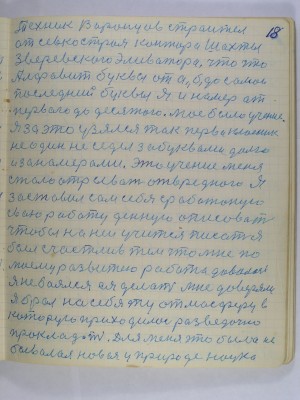 18
Техник Воронцов строител
от севкостром контора Шахты
Зверевского Элеватора, что это
Алфавит буквы от а, б до самой
последний буквы Я. и намер от
первого до десятого. мое было учение.
Я за это узялся так первокласник
не один не седел за буквами долго
и за намерами. Это учение меня
стало от вредного Я
заставил сам себя с работую
свою работу денную описовать
чтобы на ней учится писать Я
был счастлив тем что мне по
моему развитию работа давалась
я не боялся ея делать мне доверяли
Я брал на себя ту отмасферу в
которую приходилос разведочно
Для меня это была не
бывалая новая у природе наука